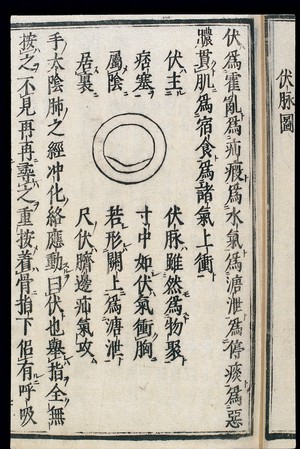 伏脉圖
伏爲霍亂爲疝瘕爲水氣爲溏泄爲停痰爲惡
膿貫肌爲宿食爲諸氣上衝
伏主
痞塞
屬陰
居裏
伏脉雖然爲物聚
寸中如伏氣衝胸
若形關上爲溏泄
尺伏臍邊疝氣攻
手太陰肺之經冲化絡應動曰伏也舉指全無
按之不見再再尋之重按着骨指下佀有呼吸